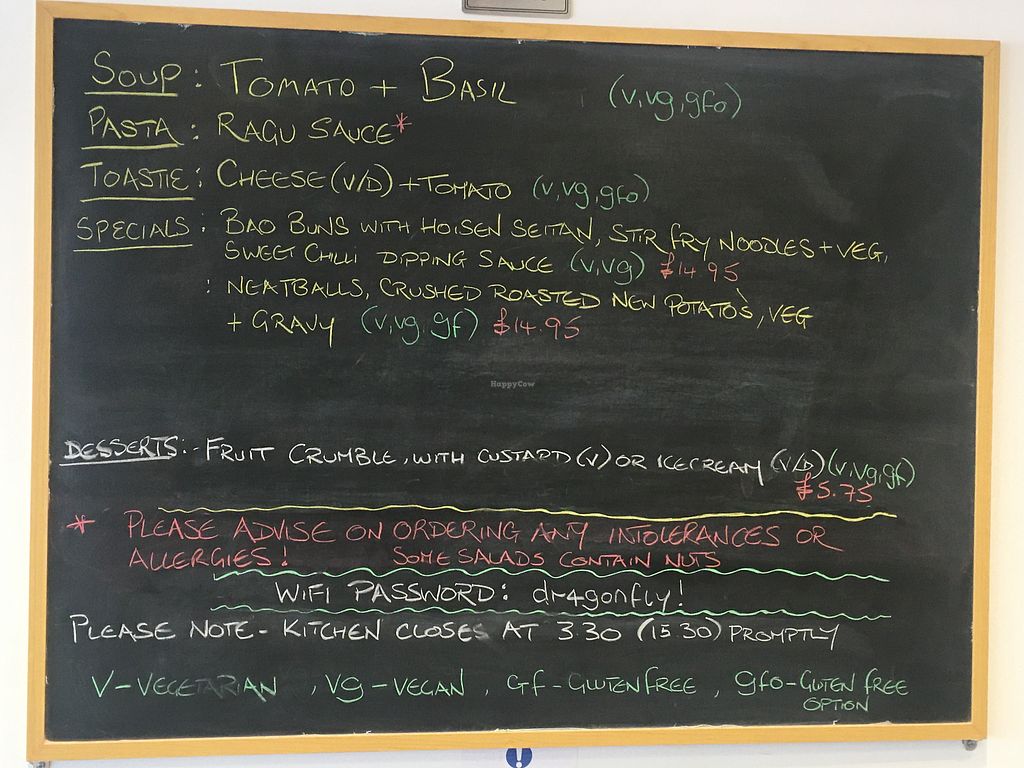 SOUP: TOMATO + BASIL (v,vg,gfo)
PASTA: RAGU SAUCE*
TOASTIE: CHEESE (V/D) + TOMATO (v,vg,gfo)
SPECIALS: BAO BUNS WITH HOISEN SEITAN, STIR FRY NOODLES + VEG,
SWEET CHILLI DIPPING SAUCE (v,vg) £14.95
: NEATBALLS, CRUSHED ROASTED NEW POTATO'S, VEG
+ GRAVY (v,vg,gf) £14.95
HappyCow
DESSERTS:- FRUIT CRUMBLE, WITH CUSTARD (V) OR ICECREAM (V/D) (v,vg,gf)
£5.75
* PLEASE ADVISE ON ORDERING ANY INTOLERANCES OR
ALLERGIES! SOME SALADS CONTAIN NUTS
WIFI PASSWORD: dr4gonfly!
PLEASE NOTE - KITCHEN CLOSES AT 3.30 (15.30) PROMPTLY
V-VEGETARIAN, Vg-VEGAN, Gf-GLUTENFREE, gfo-GLUTEN FREE
OPTION